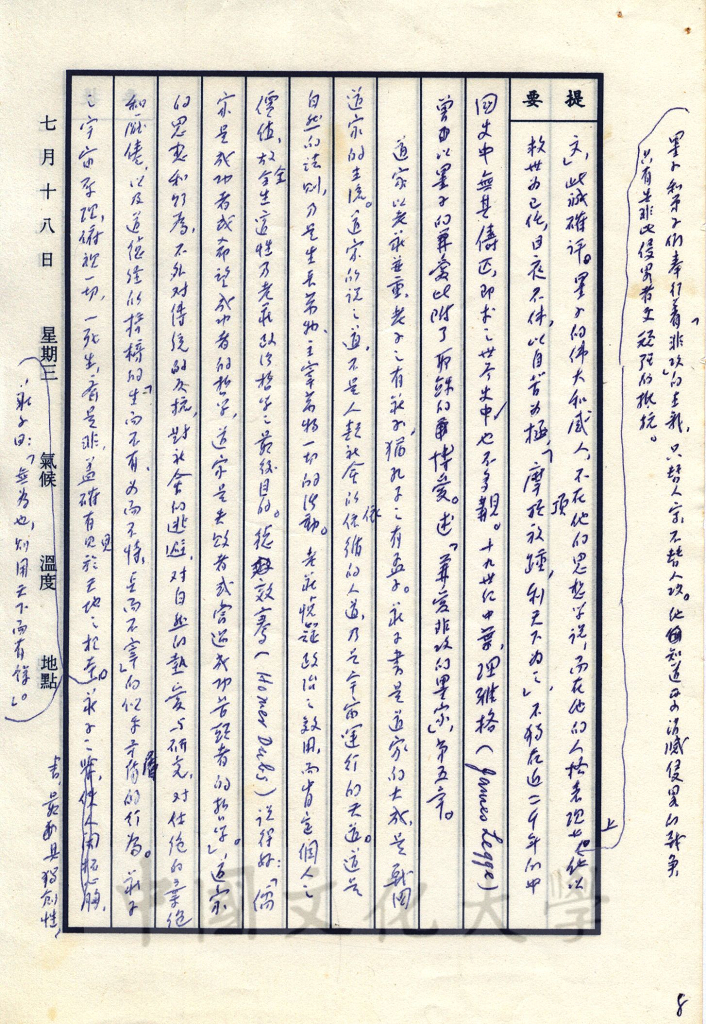 墨子和弟子們奉行着「非攻」的主義,只替人守,不替人攻。他知道要消滅侵畧的戰爭
只有其非比侵畧者更頑强的抵抗。
提要
文」此誠確評。墨子的偉大和感人,不在他的思想学說,而在他的人格表現上。他以
救世為己任,日夜不休,以自苦為極,「摩頂放踵,利天下為之」,不獨在近二千年的中
國史中無其儔匹,即求之世界史中,也不多觀。十九世纪中葉,理雅格(James Legge)
曾由以墨子的兼愛比附了耶穌的博愛。述「兼愛非攻的墨家」第五章。
道家以老莊並重,老子之有莊子,猶孔子之有孟子。莊子書是道家的大成,是戰國
道家的主流。道家所說之道,不是人類社會所依循的人道,乃是宇宙運行的天道。道是
自然的法則,乃是生長萬物、主宰萬物一切的活動。老莊懷疑政治之效用,而肯定個人之
價值,故全生適性乃老莊政治哲学之最後目的。德效騫(Homer Dubs)說得好:「儒
家是成功者或希望成功者的哲学,道家是失敗者或嘗過成功苦頭者的哲学」,道家
的思想和行為,不外對傳統的反抗,對社會的逃避,對自然的熱愛与研究,對仕途的棄絕
和厭倦,以及道德經所揭櫫的「生而不有,為而不恃,長而不宰」的似乎矛盾的行為。莊子
之宇宙原理,俯視一切,一死生,齊是非,蓋確有見於天地之於
莊子曰:「無為也,則用天下而有餘」。
書,最為具獨創性,
七月十八日 星期三 氣候 溫度 地點
中國文化大學
8